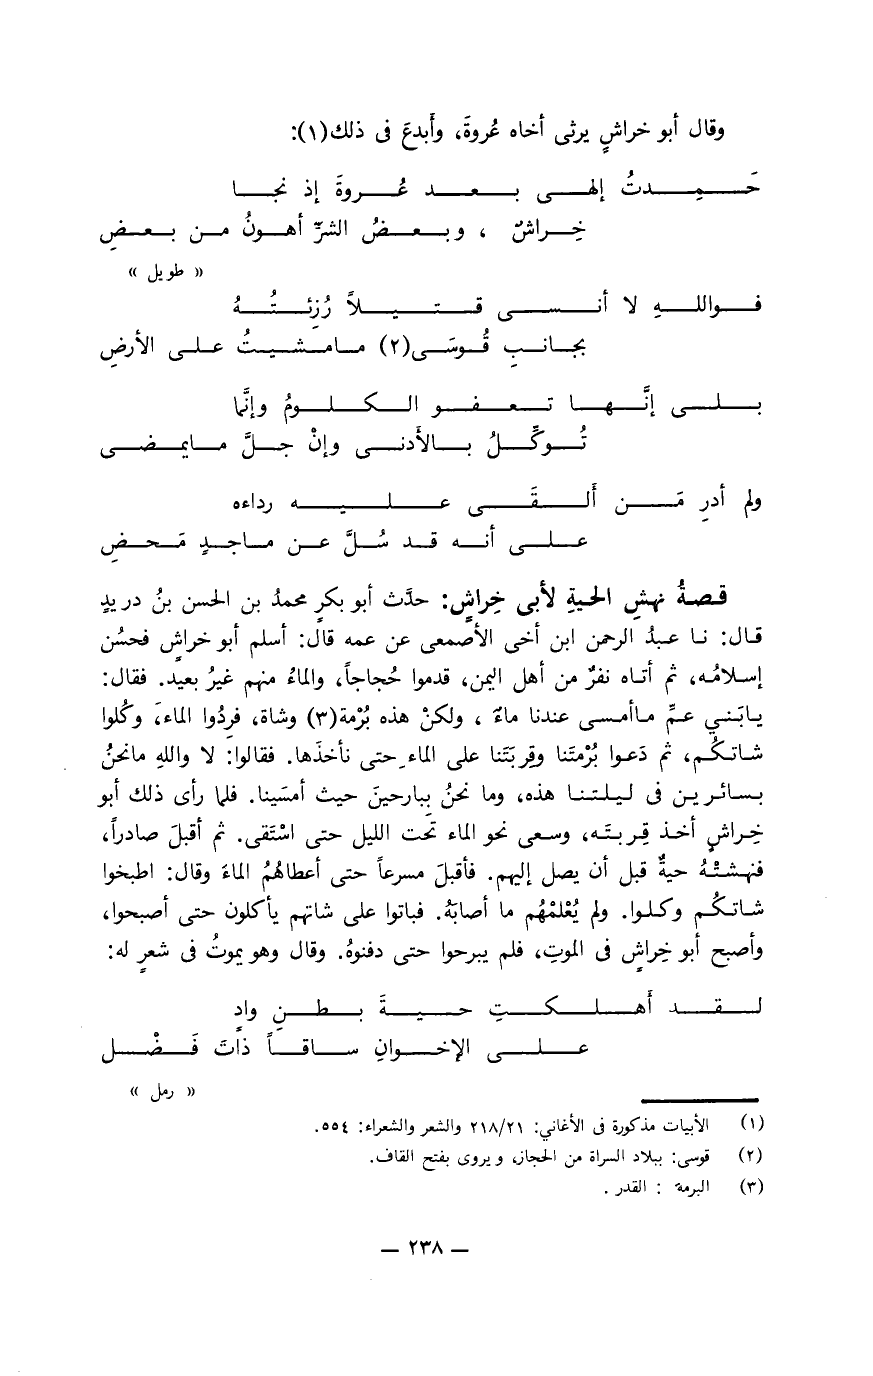 وقال أبو خراشٍ يرثى أخاه عُروةَ، وأَبدعَ فى ذلك(١):
حَمِدتُ إلهى بعد عُروةَ إذ نجا
خِراشٌ ، وبعضُ الشرِّ أهونُ من بعضِ
« طويل »
فواللهِ لا أنسى قتيلاً رُزِئتُهُ
بجانبِ قُوسَى(٢) مامشيتُ على الأرضِ
بلى إنَّها تعفو الكلومُ وإنَّما
تُوكَّلُ بالأدنى وإنْ جلَّ مايمضى
ولم أدرِ مَن أَلقَى عليه رداءه
على أنه قد سُلَّ عن ماجدٍ مَحضِ
قصةُ نهشِ الحيةِ لأبى خِراشٍ: حدَّث أبو بكرٍ محمدُ بن الحسن بنُ دريدٍ
قال: نا عبدُ الرحمن ابن أخى الأصمعى عن عمه قال: أسلم أبو خراشٍ فحسُن
إسلامُه، ثم أتاه نفرٌ من أهل اليمن، قدموا حُجاجاً، والماءُ منهم غيرُ بعيد. فقال:
يابَنى عمِّ ماأمسى عندنا ماءٌ ، ولكنْ هذه بُرْمة(٣) وشاة، فرِدُوا الماء، وكُلوا
شاتكُم، ثم دَعوا بُرْمتَنا وقِربَتَنا على الماء حتى نأخذَها. فقالوا: لا واللهِ مانحنُ
بسائرين فى ليلتنا هذه، وما نحنُ ببارحينَ حيث أمسَينا. فلما رأى ذلك أبو
خِراشٍ أخذ قِربتَه، وسعى نحو الماء تحت الليل حتى اسْتَقى. ثم أقبلَ صادراً،
فنهشتْهُ حيةٌ قبل أن يصل إليهم. فأقبلَ مسرعاً حتى أعطاهُمُ الماءَ وقال: اطبخوا
شاتكُم وكلوا. ولم يُعْلمْهُم ما أصابَهُ. فباتوا على شاتهم يأكلون حتى أصبحوا،
وأصبح أبو خِراشٍ فى الموتِ، فلم يبرحوا حتى دفنوهُ. وقال وهو يموتُ فى شعرٍ له:
لقد أَهلكتِ حيةَ بطنِ وادٍ
على الإخوانِ ساقاً ذاتَ فَضْل
« رمل »
(١) الأبيات مذكورة فى الأغاني: ٢١٨/٢١ والشعر والشعراء: ٥٥٤.
(٢) قوسى: ببلاد السراة من الحجاز، ويروى بفتح القاف.
(٣) البرمة : القدر .
— ٢٣٨ —